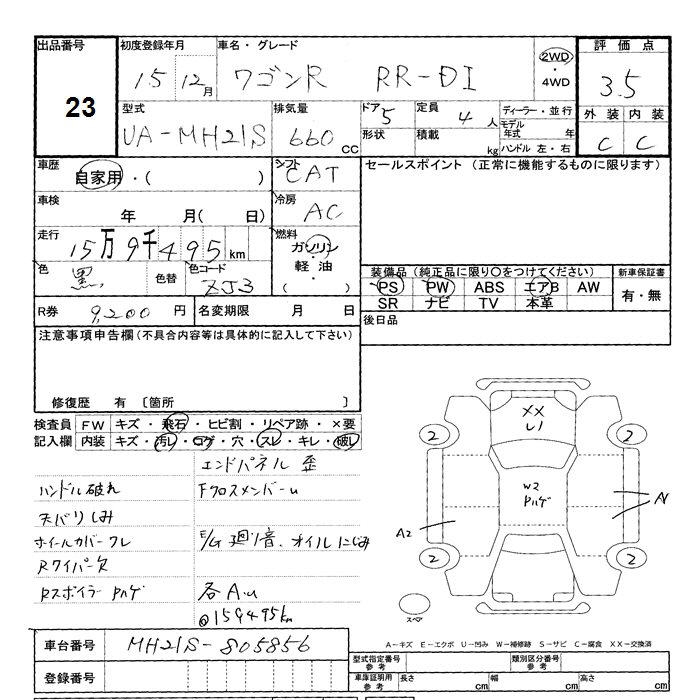 出品番号 初度登録年月 車名・グレード 評価点
23 15 12月 ワゴンR RR-DI 2WD・4WD 3.5
型式 排気量 ドア 5 定員 4人 ディーラー・並行 外装 内装
UA-MH21S 660cc 形状 積載 kg モデル年式 年 C C
ハンドル 左・右
車歴 シフト セールスポイント (正常に機能するものに限ります)
自家用・( ) CAT
車検 冷房
年 月( 日) AC
走行 燃料
15万9千495km ガソリン・軽油・( )
色 黒 色替 色コード ZJ3
装備品 (純正品に限り○をつけてください) 新車保証書
PS PW ABS エアB AW 有・無
SR ナビ TV 本革
R券 9,200円 名変期限 月 日 後日品
注意事項申告欄(不具合内容等は具体的に記入して下さい)
修復歴 有 〔箇所 〕
検査員 FW キズ・飛石・ヒビ割・リペア跡・×要
記入欄 内装 キズ・汚レ・コゲ・穴・スレ・キレ・破レ
エンドパネル 歪
ハンドル破れ Fクロスメンバーu
天バリしみ
ホイールカバーワレ E/G廻り音、オイルにじみ
Rワイパー欠
Rスポイラー Pハゲ 各A.u
@159495km
XX
U1
2 2
W2
Pハゲ
A2 A1
2 2
スペア
A-キズ E-エクボ U-凹み W-補修跡 S-サビ C-腐食 XX-交換済
車台番号 MH21S-805856
型式指定番号 参考 類別区分番号 参考
登録番号 車庫証明用 参考 長さ cm 幅 cm 高さ cm